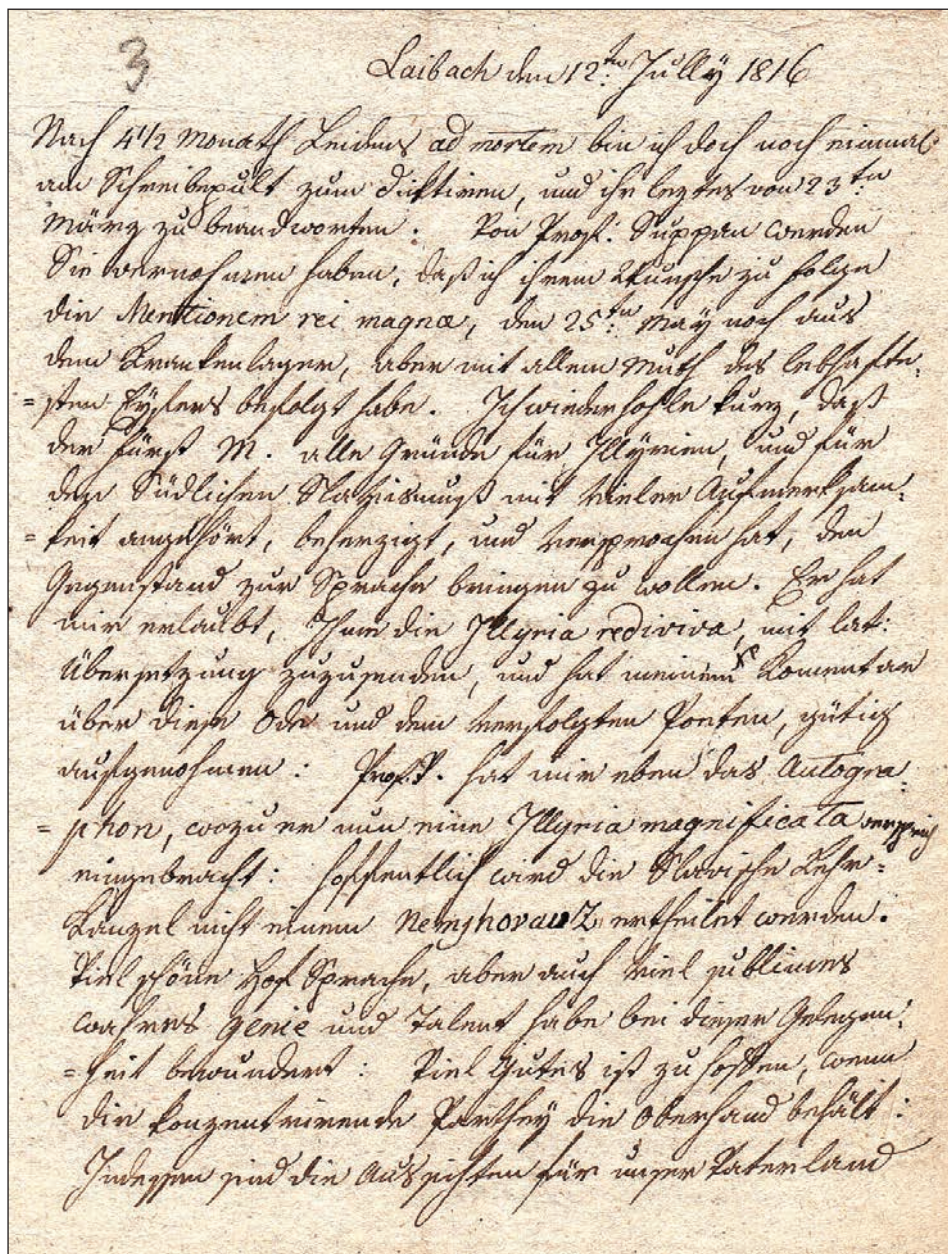 3
Laibach den 12:ten Jully 1816
Nach 4 1/2 Monath Leidens ad mortem bin ich doch noch einmal
am Schreibepult zum diktiren, und ihr leztes von 23ten
März zu beandworten. Von Prof: Suppan werden
Sie vernohmen haben, daß ich ihrem Wunsche zu folge
die Mentionem rei magnæ, den 25:ten May noch aus
dem Krankenlager, aber mit allem Muth des lebhafte-
=sten Eyfers befolgt habe. Ich wiederhohle kurz, daß
der Fürst M. alle Gründe für Illÿrien, und für
den Südlichen Slavismuß mit vieler Aufmerksam-
=keit angehört, beherzigt, und versprochen hat, den
Gegenstand zur Sprache bringen zu wollen. Er hat
mir erlaubt, Ihm die Illyria rediviva, mit lat:
Übersetzung zuzusenden, und hat meinen Komentar
über diese Ode und den verfolgten Poeten, gütig
aufgenohmen: Prof. P. hat mir eben das Autogra-
=phon, wozu er nun eine Illyria magnificata
eingebracht: hoffentlich wird die Slavische Lehr-
Kanzel nicht einem Nemshovauz ertheilet werden.
Viel schöne Hof Sprache, aber auch viel sublimes
wahres Genie und Talent habe bei dieser Gelegen-
=heit bewundert: Viel Gutes ist zu hoffen, wenn
die konzentrirende Parthey die Oberhand behält:
Indessen sind die Aussichten für unser Vaterland